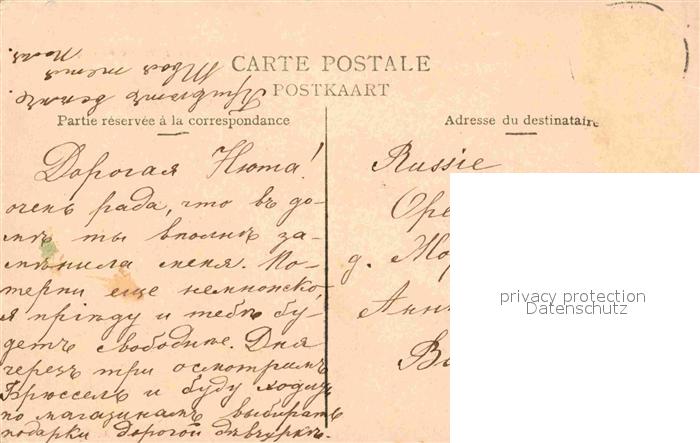 CARTE POSTALE
POSTKAART
Partie réservée à la correspondance
Adresse du destinataire
Дорогая Нюта!
очень рада, что въ до-
мѣ ты вполнѣ за-
мѣнила меня. По-
терпи еще немножко,
я пріѣду и тебѣ бу-
детъ свободнѣе. Дня
черезъ три осмотримъ
Брюссель и буду ходить
по магазинамъ выбирать
подарки дорогой дѣвчуркѣ.
Твоя тетя
Russie
Оре
г. Мор
Анн
privacy protection
Datenschutz